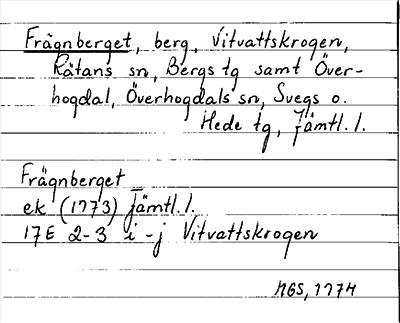 Frägnberget, berg, Vitvattskrogen,
Rätans sn, Bergs tg samt Över-
hogdal, Överhogdals sn, Svegs o.
Hede tg, Jämtl. l.
Frägnberget
ek (1973) Jämtl. l.
17E 2-3 i-j Vitvattskrogen
NGS, 1974